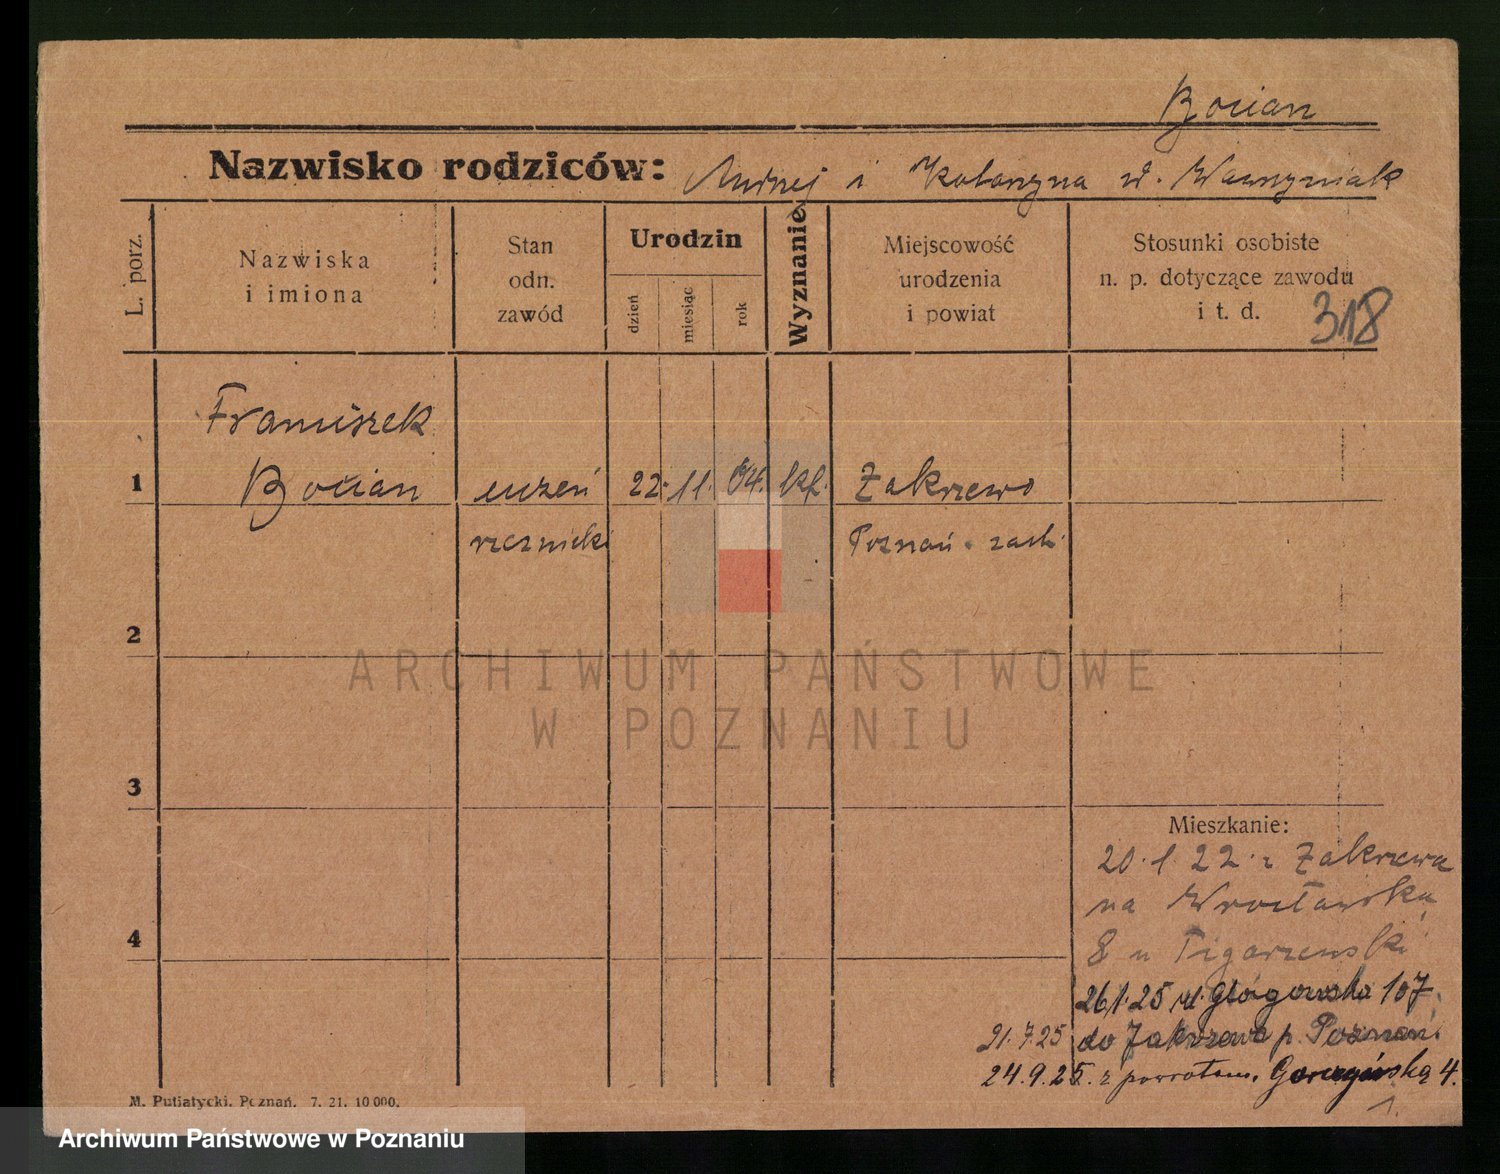 Bocian
Nazwisko rodziców: Andrzej i Katarzyna d. Wawrzyniak
L. porz.
Nazwiska
i imiona
Stan
odn.
zawód
Urodzin
dzień
miesiąc
rok
Wyznanie
Miejscowość
urodzenia
i powiat
Stosunki osobiste
n. p. dotyczące zawodu
i t. d.
318
Franciszek
1 Bocian uczeń 22. 11. 04. kf. Zakrzewo
rzeźnicki Poznań-zach.
2
3
4
ARCHIWUM PAŃSTWOWE
W POZNANIU
Mieszkanie:
20.1 22. z Zakrzewa
na Wrocławską
8 u
26/1.25 ul. Głogowska 107.
21.7.25 do Zakrzewa p. Poznań.
24.9.25. z powrotem. Gorczyńską 4.
1.
M. Putiatycki. Poznań. 7. 21. 10 000.
Archiwum Państwowe w Poznaniu